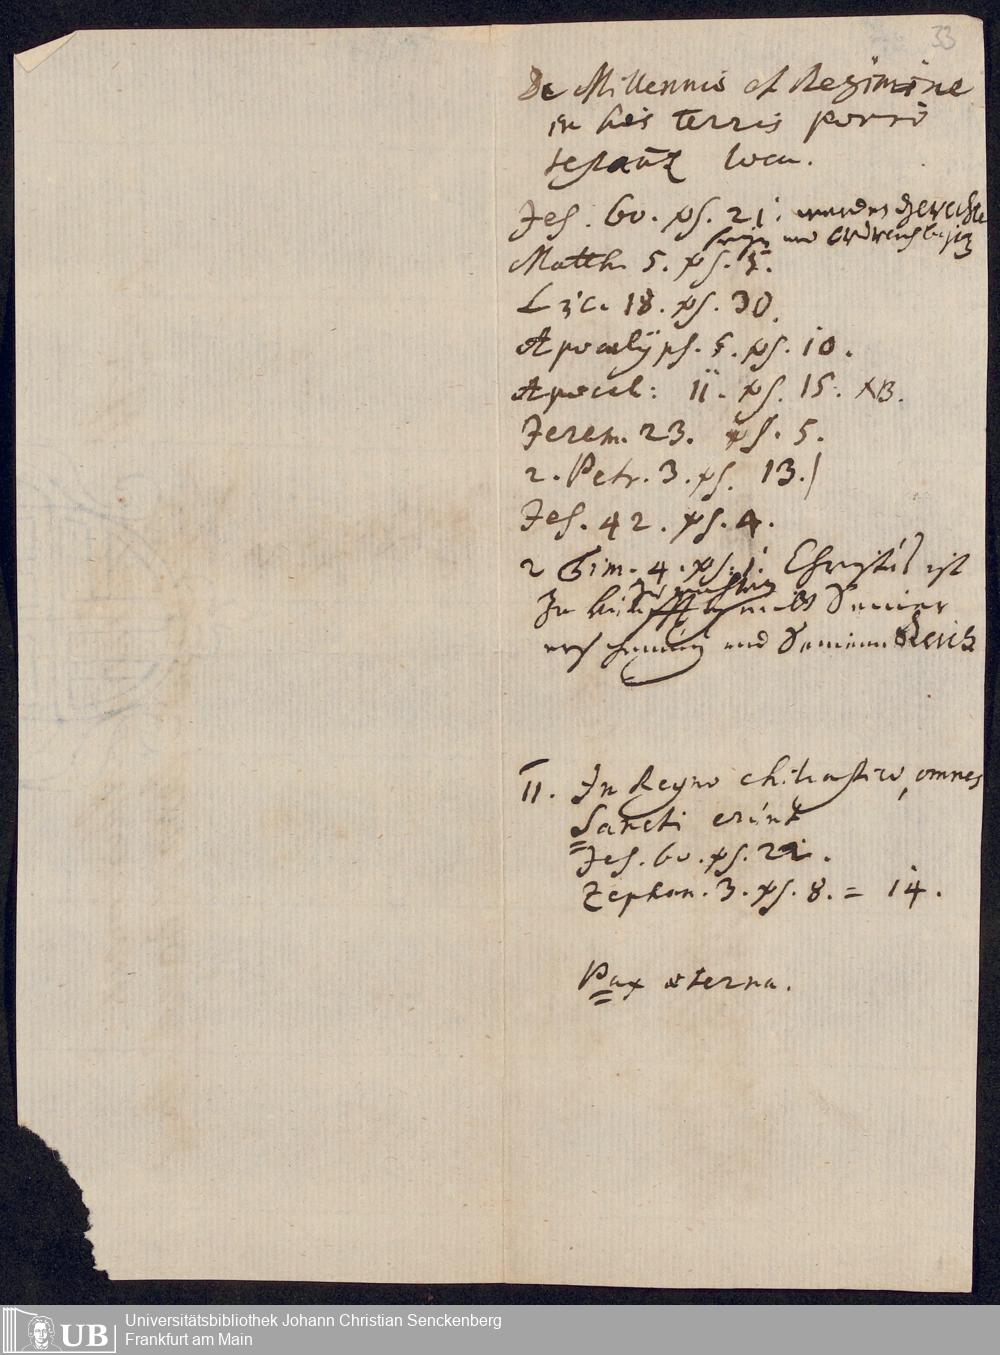 33
De Millennio et Regimine
in his terris porro
testant loca.
Jes. 60. vs. 21. werden gerechte
seyn und Erdreich besiz
Matth. 5. vs. 5.
Luc. 18. vs. 30.
Apocalyps. 5. vs. 10.
Apocal: 11. vs. 15. NB.
Jerem. 23. vs. 5.
2. Petr. 3. vs. 13.
Jes. 42. vs. 4.
2 Tim. 4. vs. 1. Christus ist
zu richten
Zu mit Seiner
erscheinung und Seinem Reich
II. In Regno chiliastico, omnes
Sancti erunt
Jes. 60. vs. 21.
Zephan. 3. vs. 8. = 14.
Pax æterna.
UB
Universitätsbibliothek Johann Christian Senckenberg
Frankfurt am Main